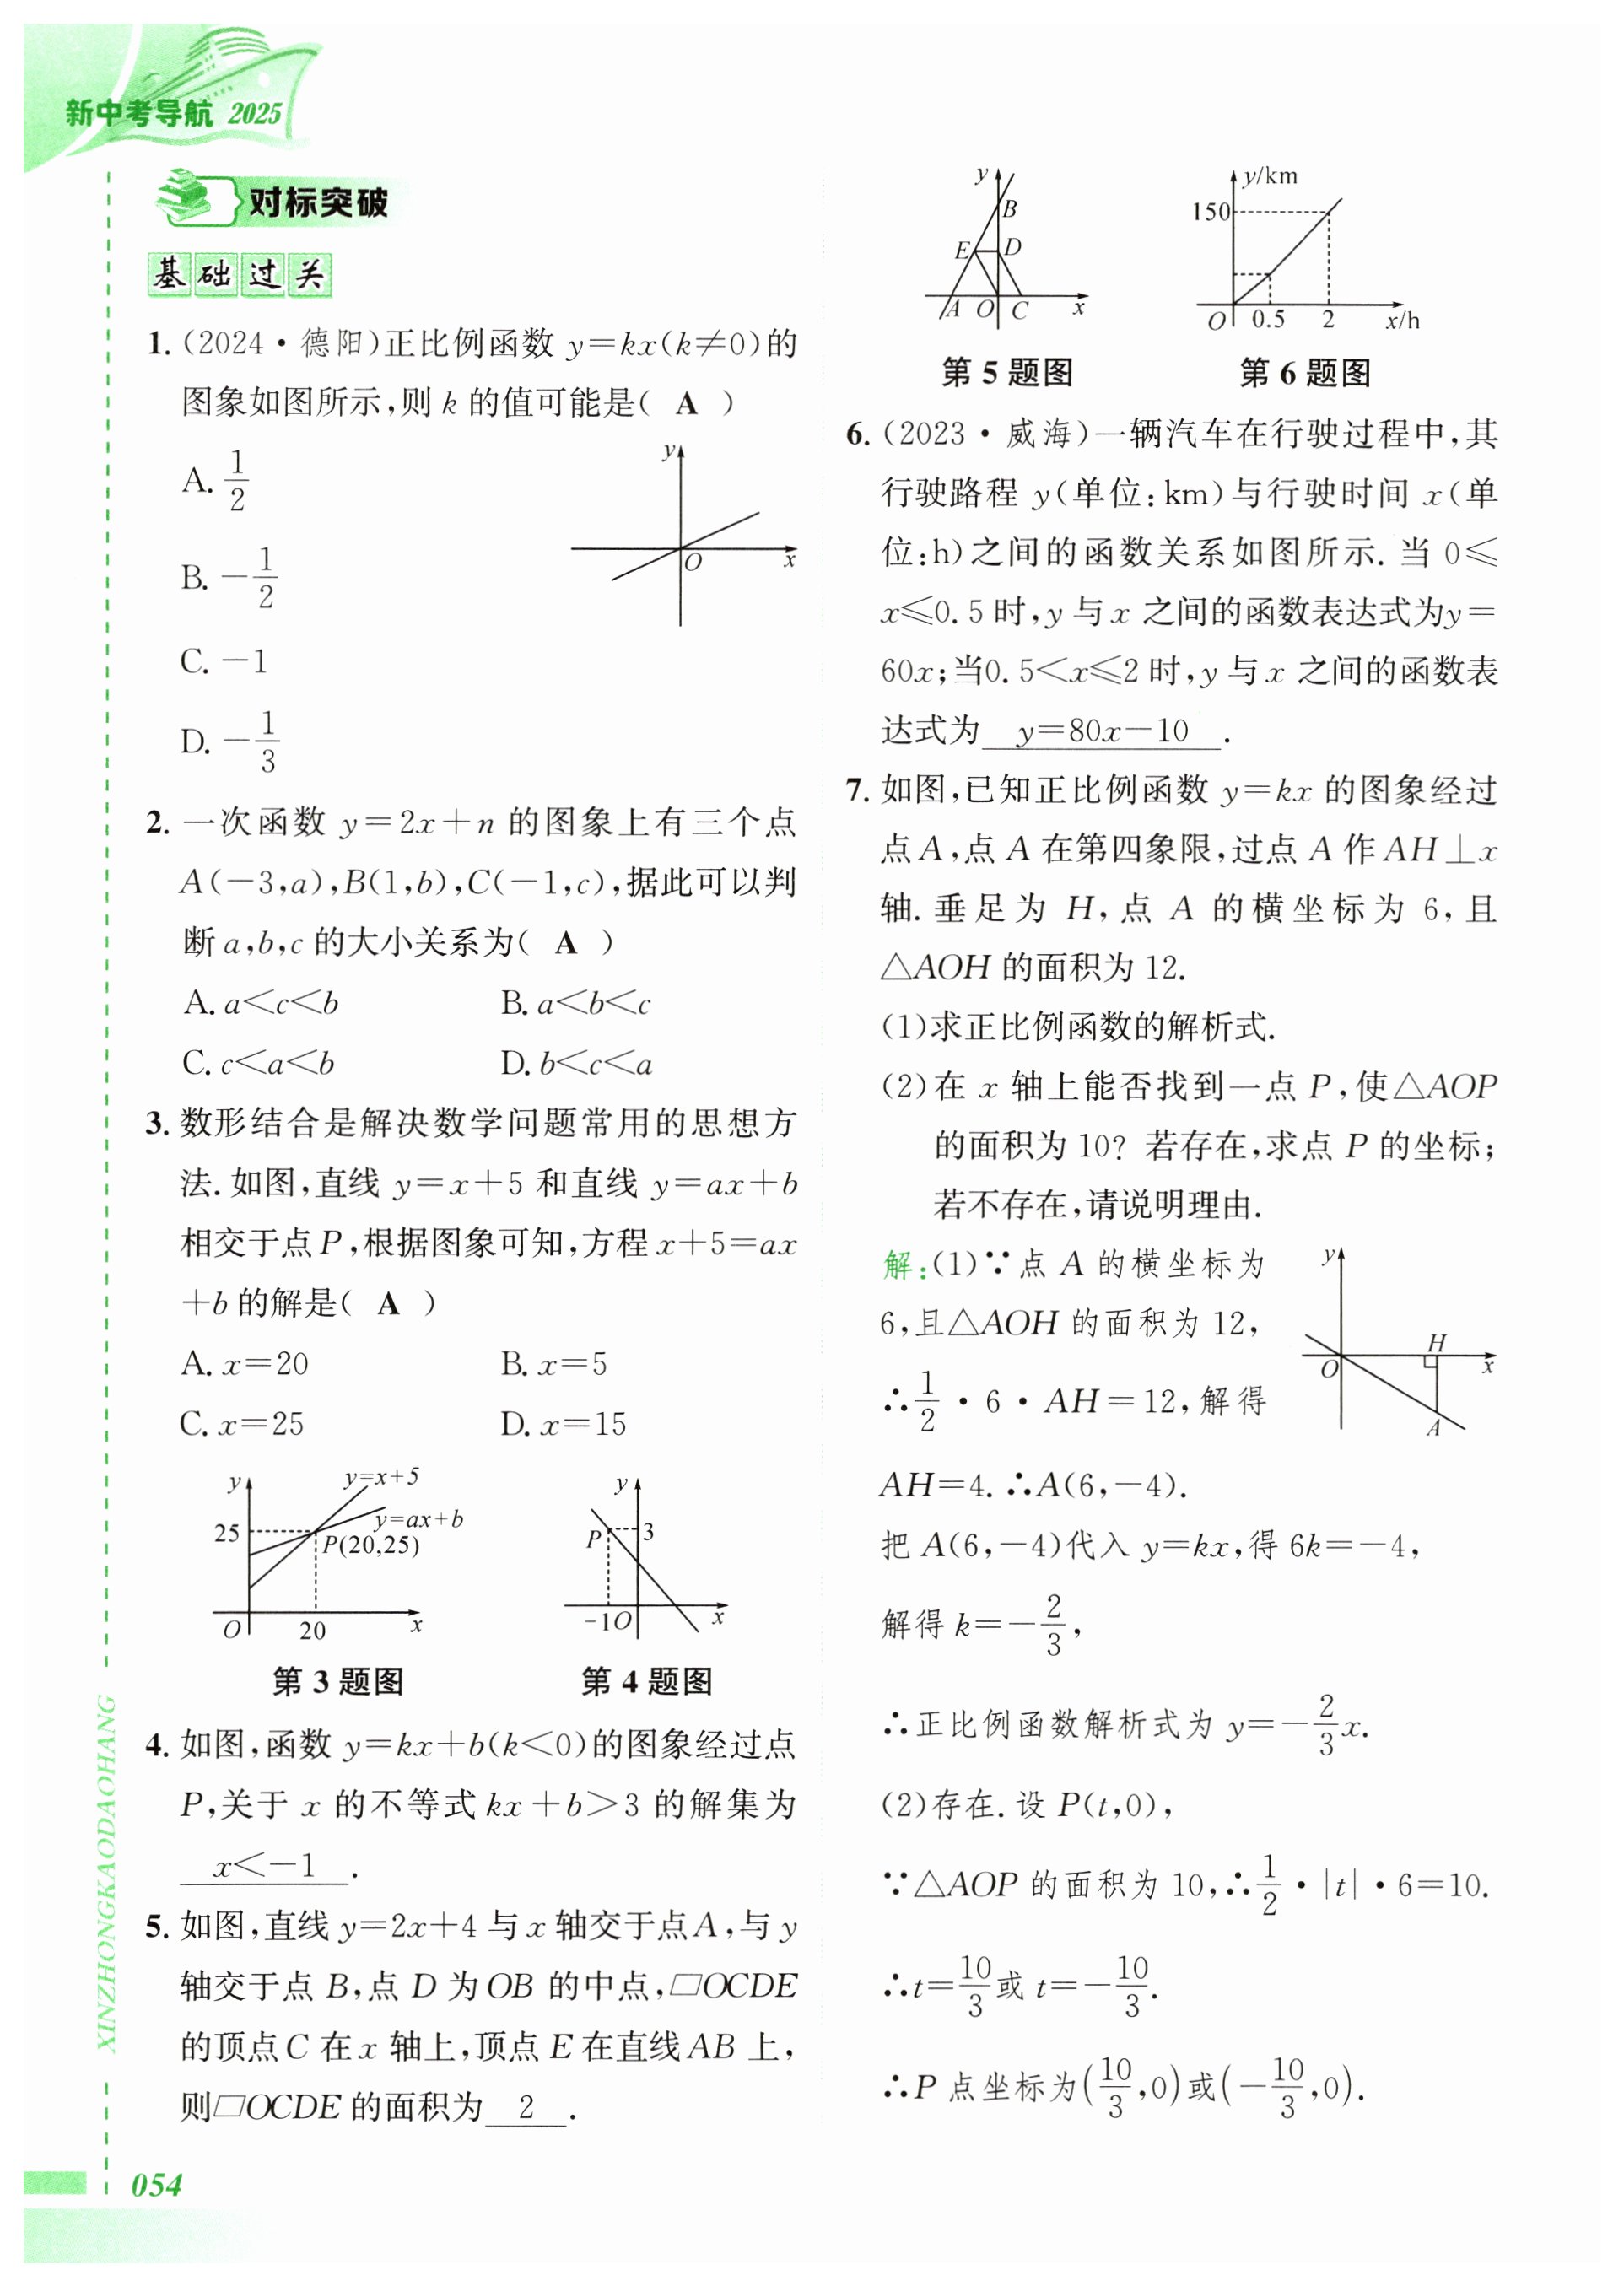 新中考导航 2025
对标突破
基础过关
1.(2024·德阳)正比例函数 y=kx(k≠0)的
图象如图所示,则 k 的值可能是( A )
A. 1/2
B. -1/2
C. -1
D. -1/3
y
O
x
2. 一次函数 y=2x+n 的图象上有三个点
A(-3,a),B(1,b),C(-1,c),据此可以判
断 a,b,c 的大小关系为( A )
A. a<c<b B. a<b<c
C. c<a<b D. b<c<a
3. 数形结合是解决数学问题常用的思想方
法. 如图,直线 y=x+5 和直线 y=ax+b
相交于点 P,根据图象可知,方程 x+5=ax
+b 的解是( A )
A. x=20 B. x=5
C. x=25 D. x=15
y
y=x+5
y=ax+b
25
P(20,25)
O
20
x
第 3 题图
y
P
3
-1O
x
第 4 题图
4. 如图,函数 y=kx+b(k<0)的图象经过点
P,关于 x 的不等式 kx+b>3 的解集为
x<-1 .
5. 如图,直线 y=2x+4 与 x 轴交于点 A,与 y
轴交于点 B,点 D 为 OB 的中点,□OCDE
的顶点 C 在 x 轴上,顶点 E 在直线 AB 上,
则□OCDE 的面积为 2 .
y
B
E
D
A
O
C
x
第 5 题图
y/km
150
O
0.5
2
x/h
第 6 题图
6.(2023·威海)一辆汽车在行驶过程中,其
行驶路程 y(单位:km)与行驶时间 x(单
位:h)之间的函数关系如图所示. 当 0≤
x≤0.5 时,y 与 x 之间的函数表达式为y=
60x;当0.5<x≤2 时,y 与 x 之间的函数表
达式为 y=80x-10 .
7. 如图,已知正比例函数 y=kx 的图象经过
点 A,点 A 在第四象限,过点 A 作 AH⊥x
轴. 垂足为 H,点 A 的横坐标为 6,且
△AOH 的面积为 12.
(1)求正比例函数的解析式.
(2)在 x 轴上能否找到一点 P,使△AOP
的面积为 10? 若存在,求点 P 的坐标;
若不存在,请说明理由.
解:(1)∵点 A 的横坐标为
6,且△AOH 的面积为 12,
∴1/2·6·AH=12,解得
y
H
O
x
A
AH=4. ∴A(6,-4).
把 A(6,-4)代入 y=kx,得 6k=-4,
解得 k=-2/3,
∴正比例函数解析式为 y=-2/3x.
(2)存在. 设 P(t,0),
∵△AOP 的面积为 10,∴1/2·|t|·6=10.
∴t=10/3或 t=-10/3.
∴P 点坐标为(10/3,0)或(-10/3,0).
XINZHONGKAODAOHANG
054